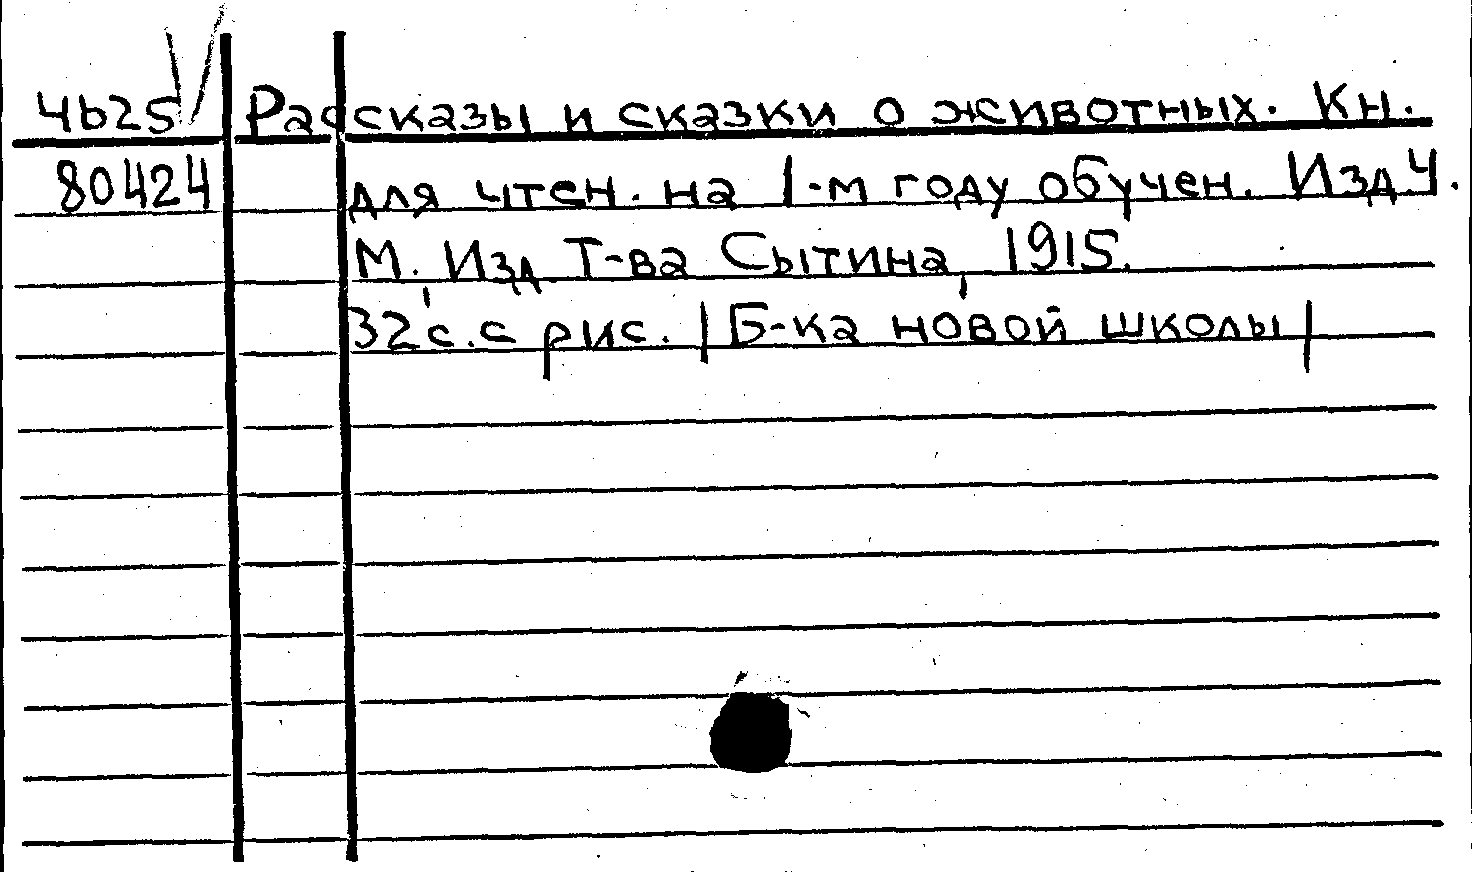 4b25 Рассказы и сказки о животных. Кн.
80424 для чтен. на 1-м году обучен. Изд 4.
М. Изд. Т-ва Сытина, 1915.
32 с. с рис. | Б-ка новой школы |